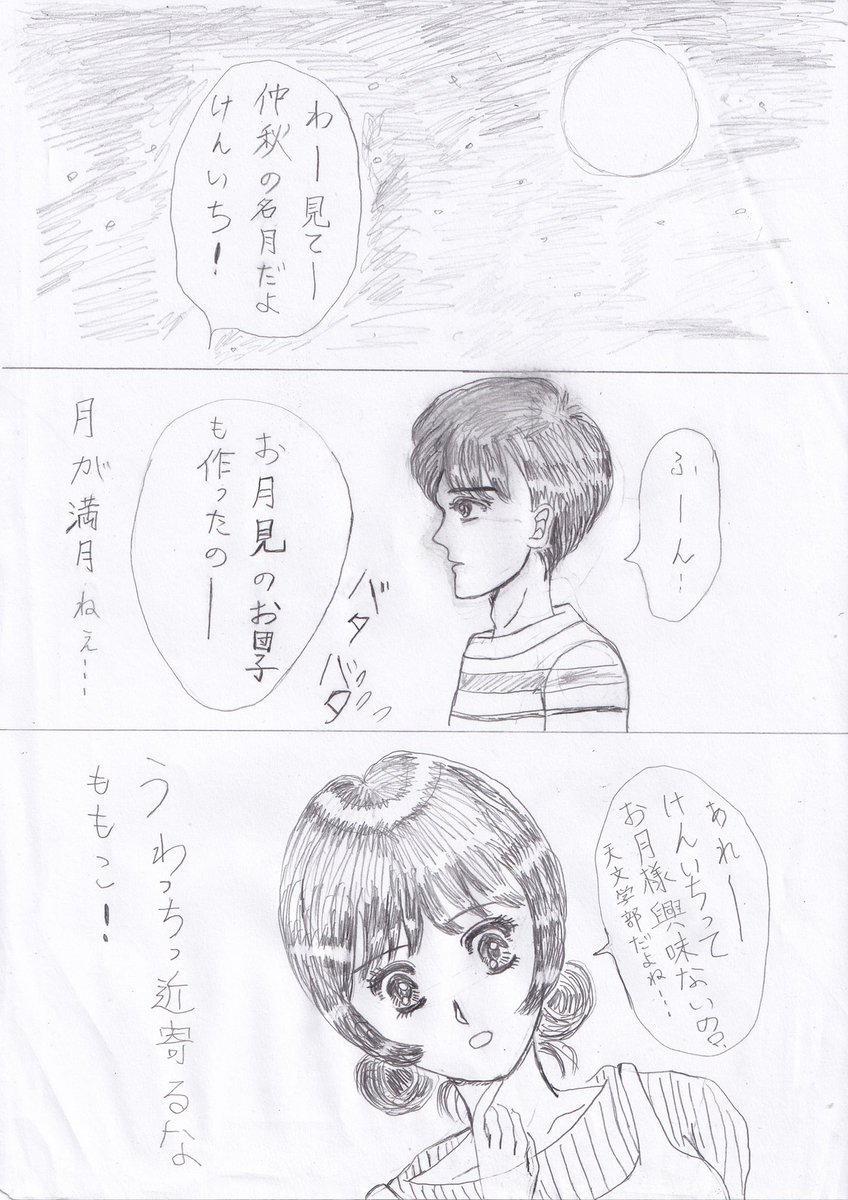 わー見てー
仲秋の名月だよ
けんいち！
ふーん！
お月見のお団子
も作ったのー
バタ
バタッッ
月が満月ねぇ…
あれー
けんいちって
お月様興味ないの？
天文学部だよね！…
うわっちっ近寄るな
ももこ！